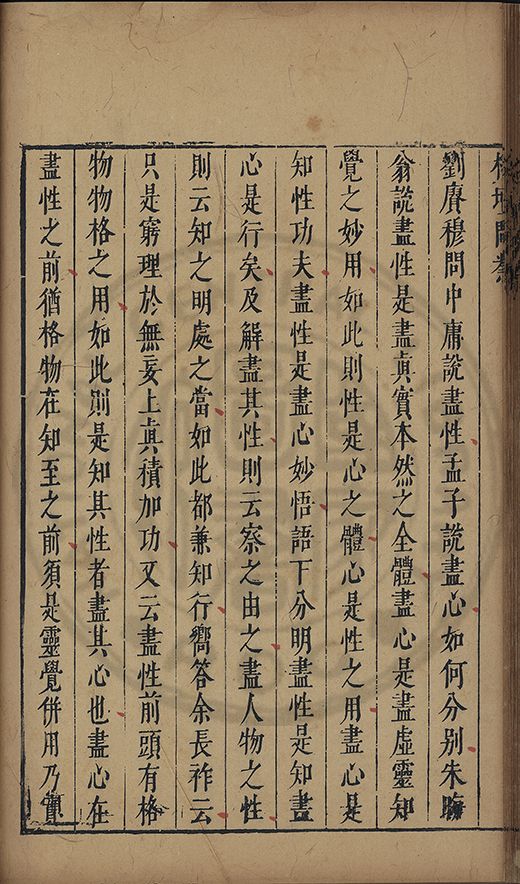 劉賡穆問中庸說盡性孟子說盡心如何分別朱晦
翁說盡性是盡眞實本然之全體盡心是盡虛靈知
覺之妙用如此則性是心之體心是性之用盡心是
知性功夫盡性是盡心妙悟語下分明盡性是知盡
心是行矣及解盡其性則云察之由之盡人物之性
則云知之明處之當如此都兼知行嚮答余長祚云
只是窮理於無妄上眞積加功又云盡性前頭有格
物物格之用如此則是知其性者盡其心也盡心在
盡性之前猶格物在知至之前須是靈覺併用乃實